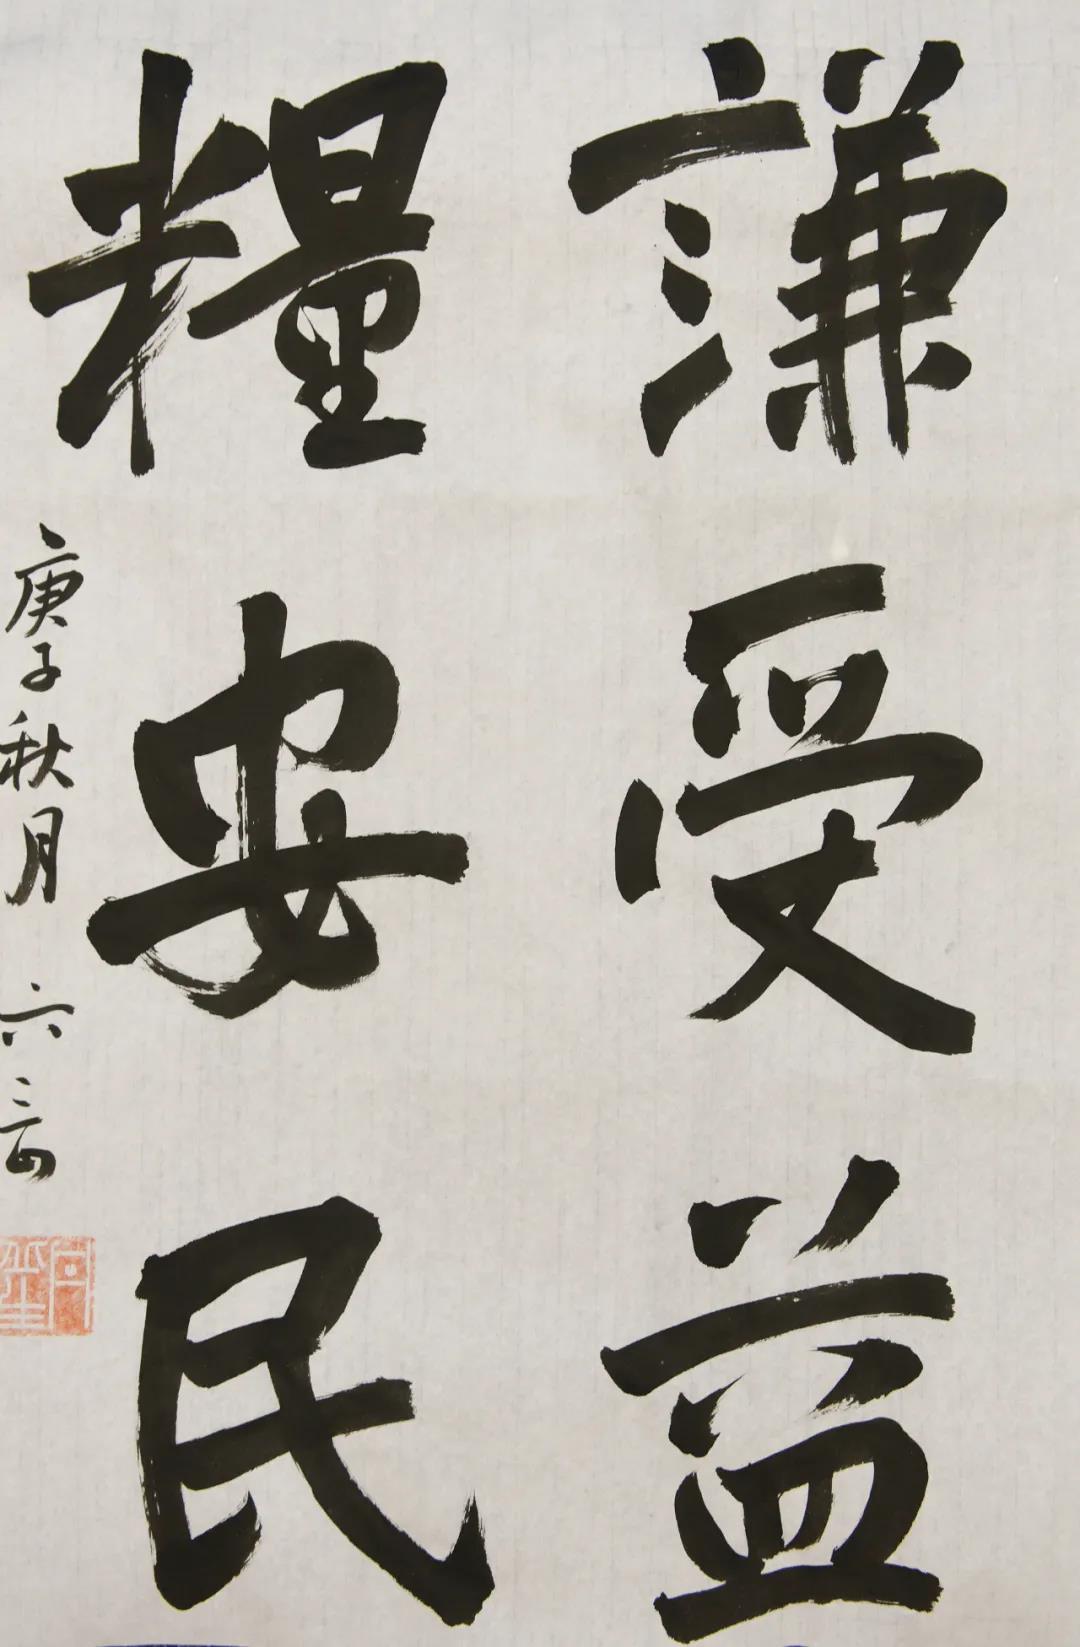 謙受益
糧安民
庚子秋月 六言